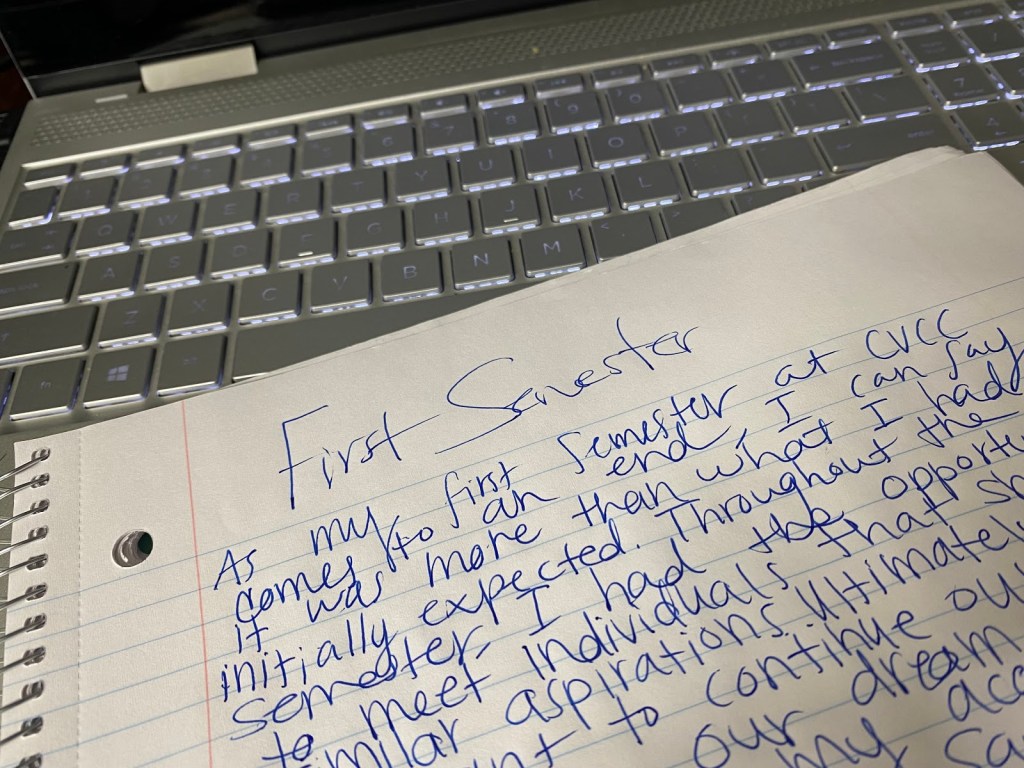 First Semester
As my first semester at CVCC
comes to an end, I can say
it was more than what I had
initially expected. Throughout the
semester I had the
to meet individuals that
similar aspirations. Ultimately
to continue
our dream
my
Q W E R T Y U I O P
A S D F G H J K L
Z X C V B N M
fn